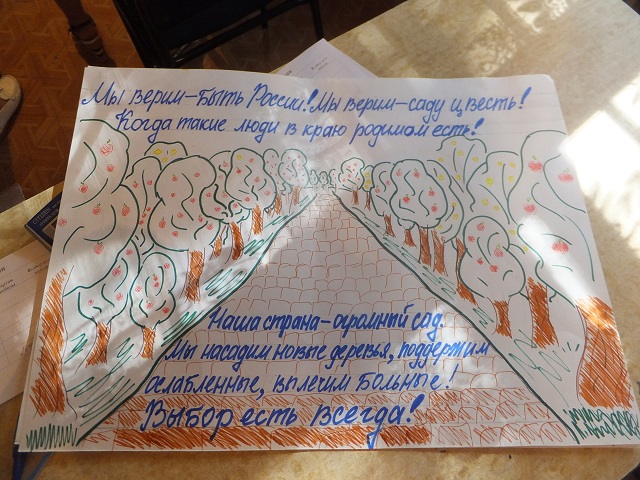 Мы верим-быть России! Мы верим-саду цвесть!
Когда такие люди в краю родимом есть!
Наша страна-огромный сад.
Мы насадим новые деревья, поддержим
ослабленные, вылечим больные!
Выбор есть всегда!